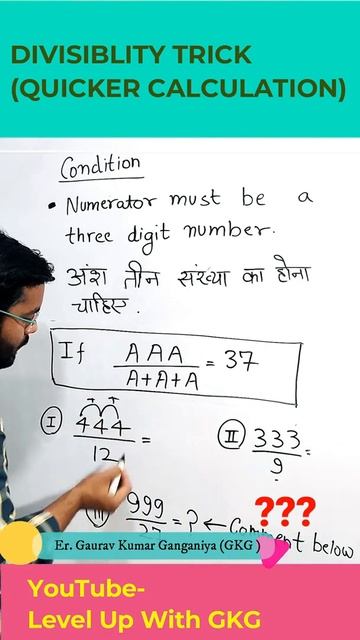 DIVISIBLITY TRICK
(QUICKER CALCULATION)
Condition
• Numerator must be a
three digit number.
अंश तीन संख्या का होना
चाहिए.
If AAA / A+A+A = 37
I 444 / 12 =
II 333 / 9 =
999 / 27 = ? ← Comment below
???
Er. Gaurav Kumar Ganganiya (GKG)
YouTube-
Level Up With GKG